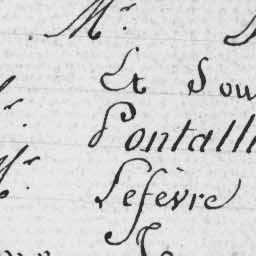 Mr.
Et Sou
Pontalli
Mr. Lefèvre